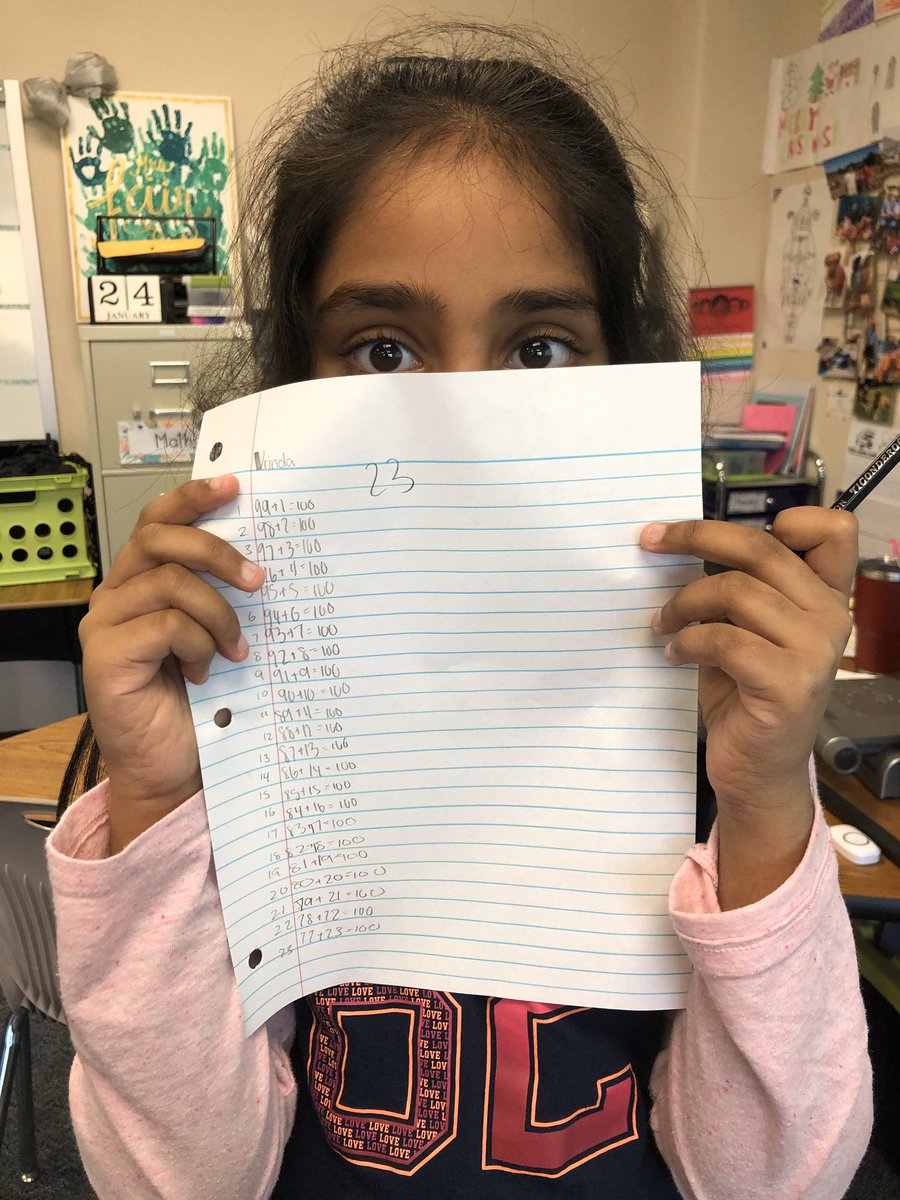 Mrs.
24
JANUARY
Math
Vrinda
23
1 99+1=100
2 98+2=100
3 97+3=100
96+4=100
5 95+5=100
6 94+6=100
7 93+7=100
8 92+8=100
9 91+9=100
10 90+10=100
11 89+4=100
12 88+12=100
13 87+13=100
14 86+14=100
15 85+15=100
16 84+16=100
17 83+17=100
18 82+18=100
19 81+19=100
20 80+20=100
21 79+21=100
22 78+22=100
23 77+23=100
TICONDEROG
LOVE LOVE LOVE
OE